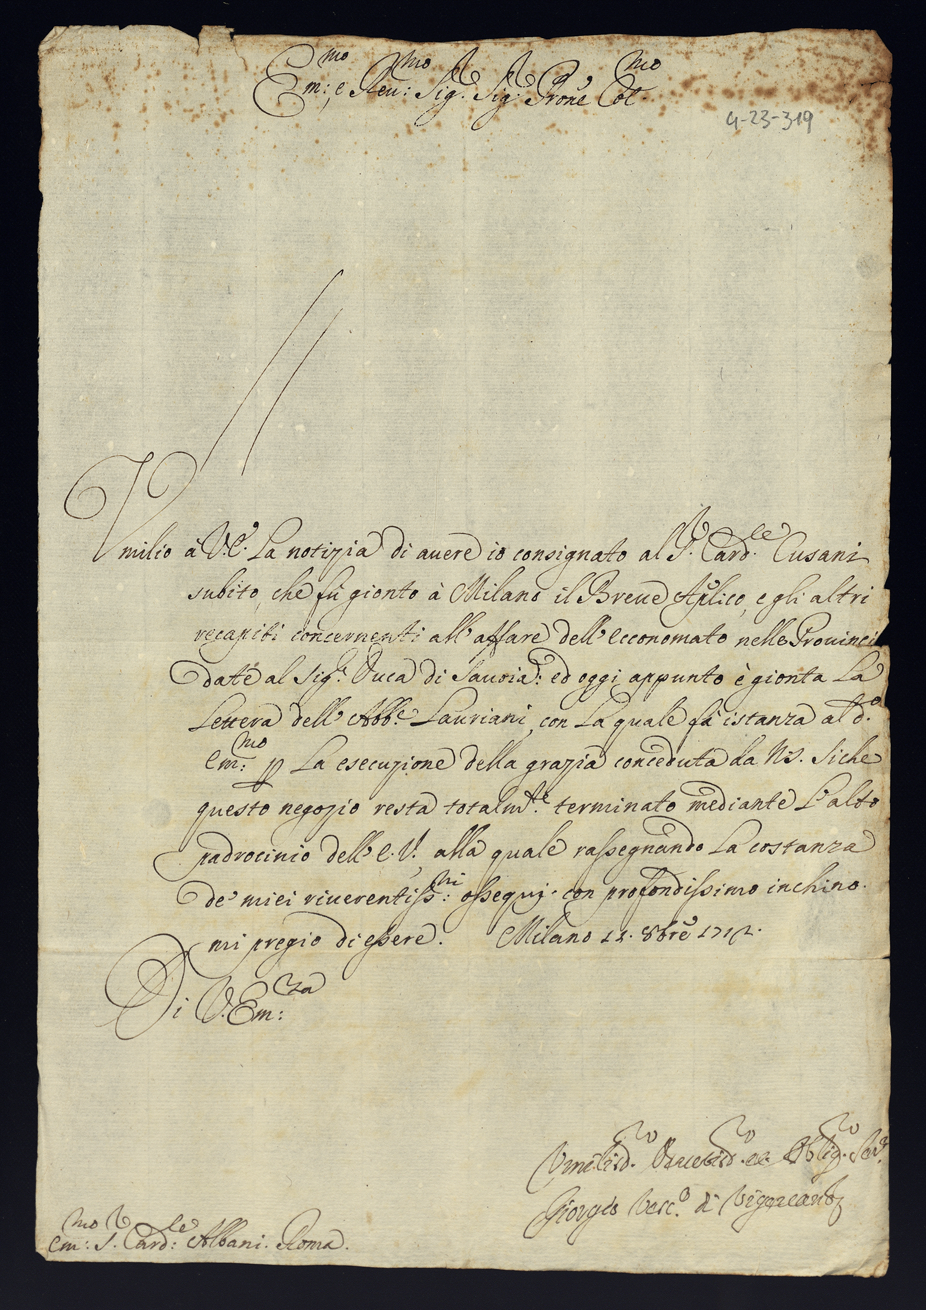 Em:mo e Reu:mo Sig.r Sig.r Prone Col.mo
4-23-319
Vmilio à V.E. La notizia di auere io consignato al S.r Card.le Cusani
subito, che fù gionto à Milano il Breue Aplico, e gli altri
recapiti concernenti all'affare dell'Economato nelle Prouinci
date al Sig.r Duca di Sauoia: ed oggi appunto è gionta La
Lettera dell'Abb.e Lauriani, con La quale fà istanza al d.o
Em:mo p La esecuzione della grazia conceduta da N.S. Siche
questo negozio resta totalm.te terminato mediante L'alto
padrocinio dell'E.V. alla quale rassegnando La costanza
de' miei riuerentiss:mi ossequij con profondissimo inchino.
mi pregio di essere. Milano 12. 8bre 1712.
Di V. Em:za
Vmiliss.mo Deuotiss.mo ed Oblig.mo Ser.
Giorgio Vesc.o di Vigeuano
Em:mo S.r Card:le Albani. Roma.